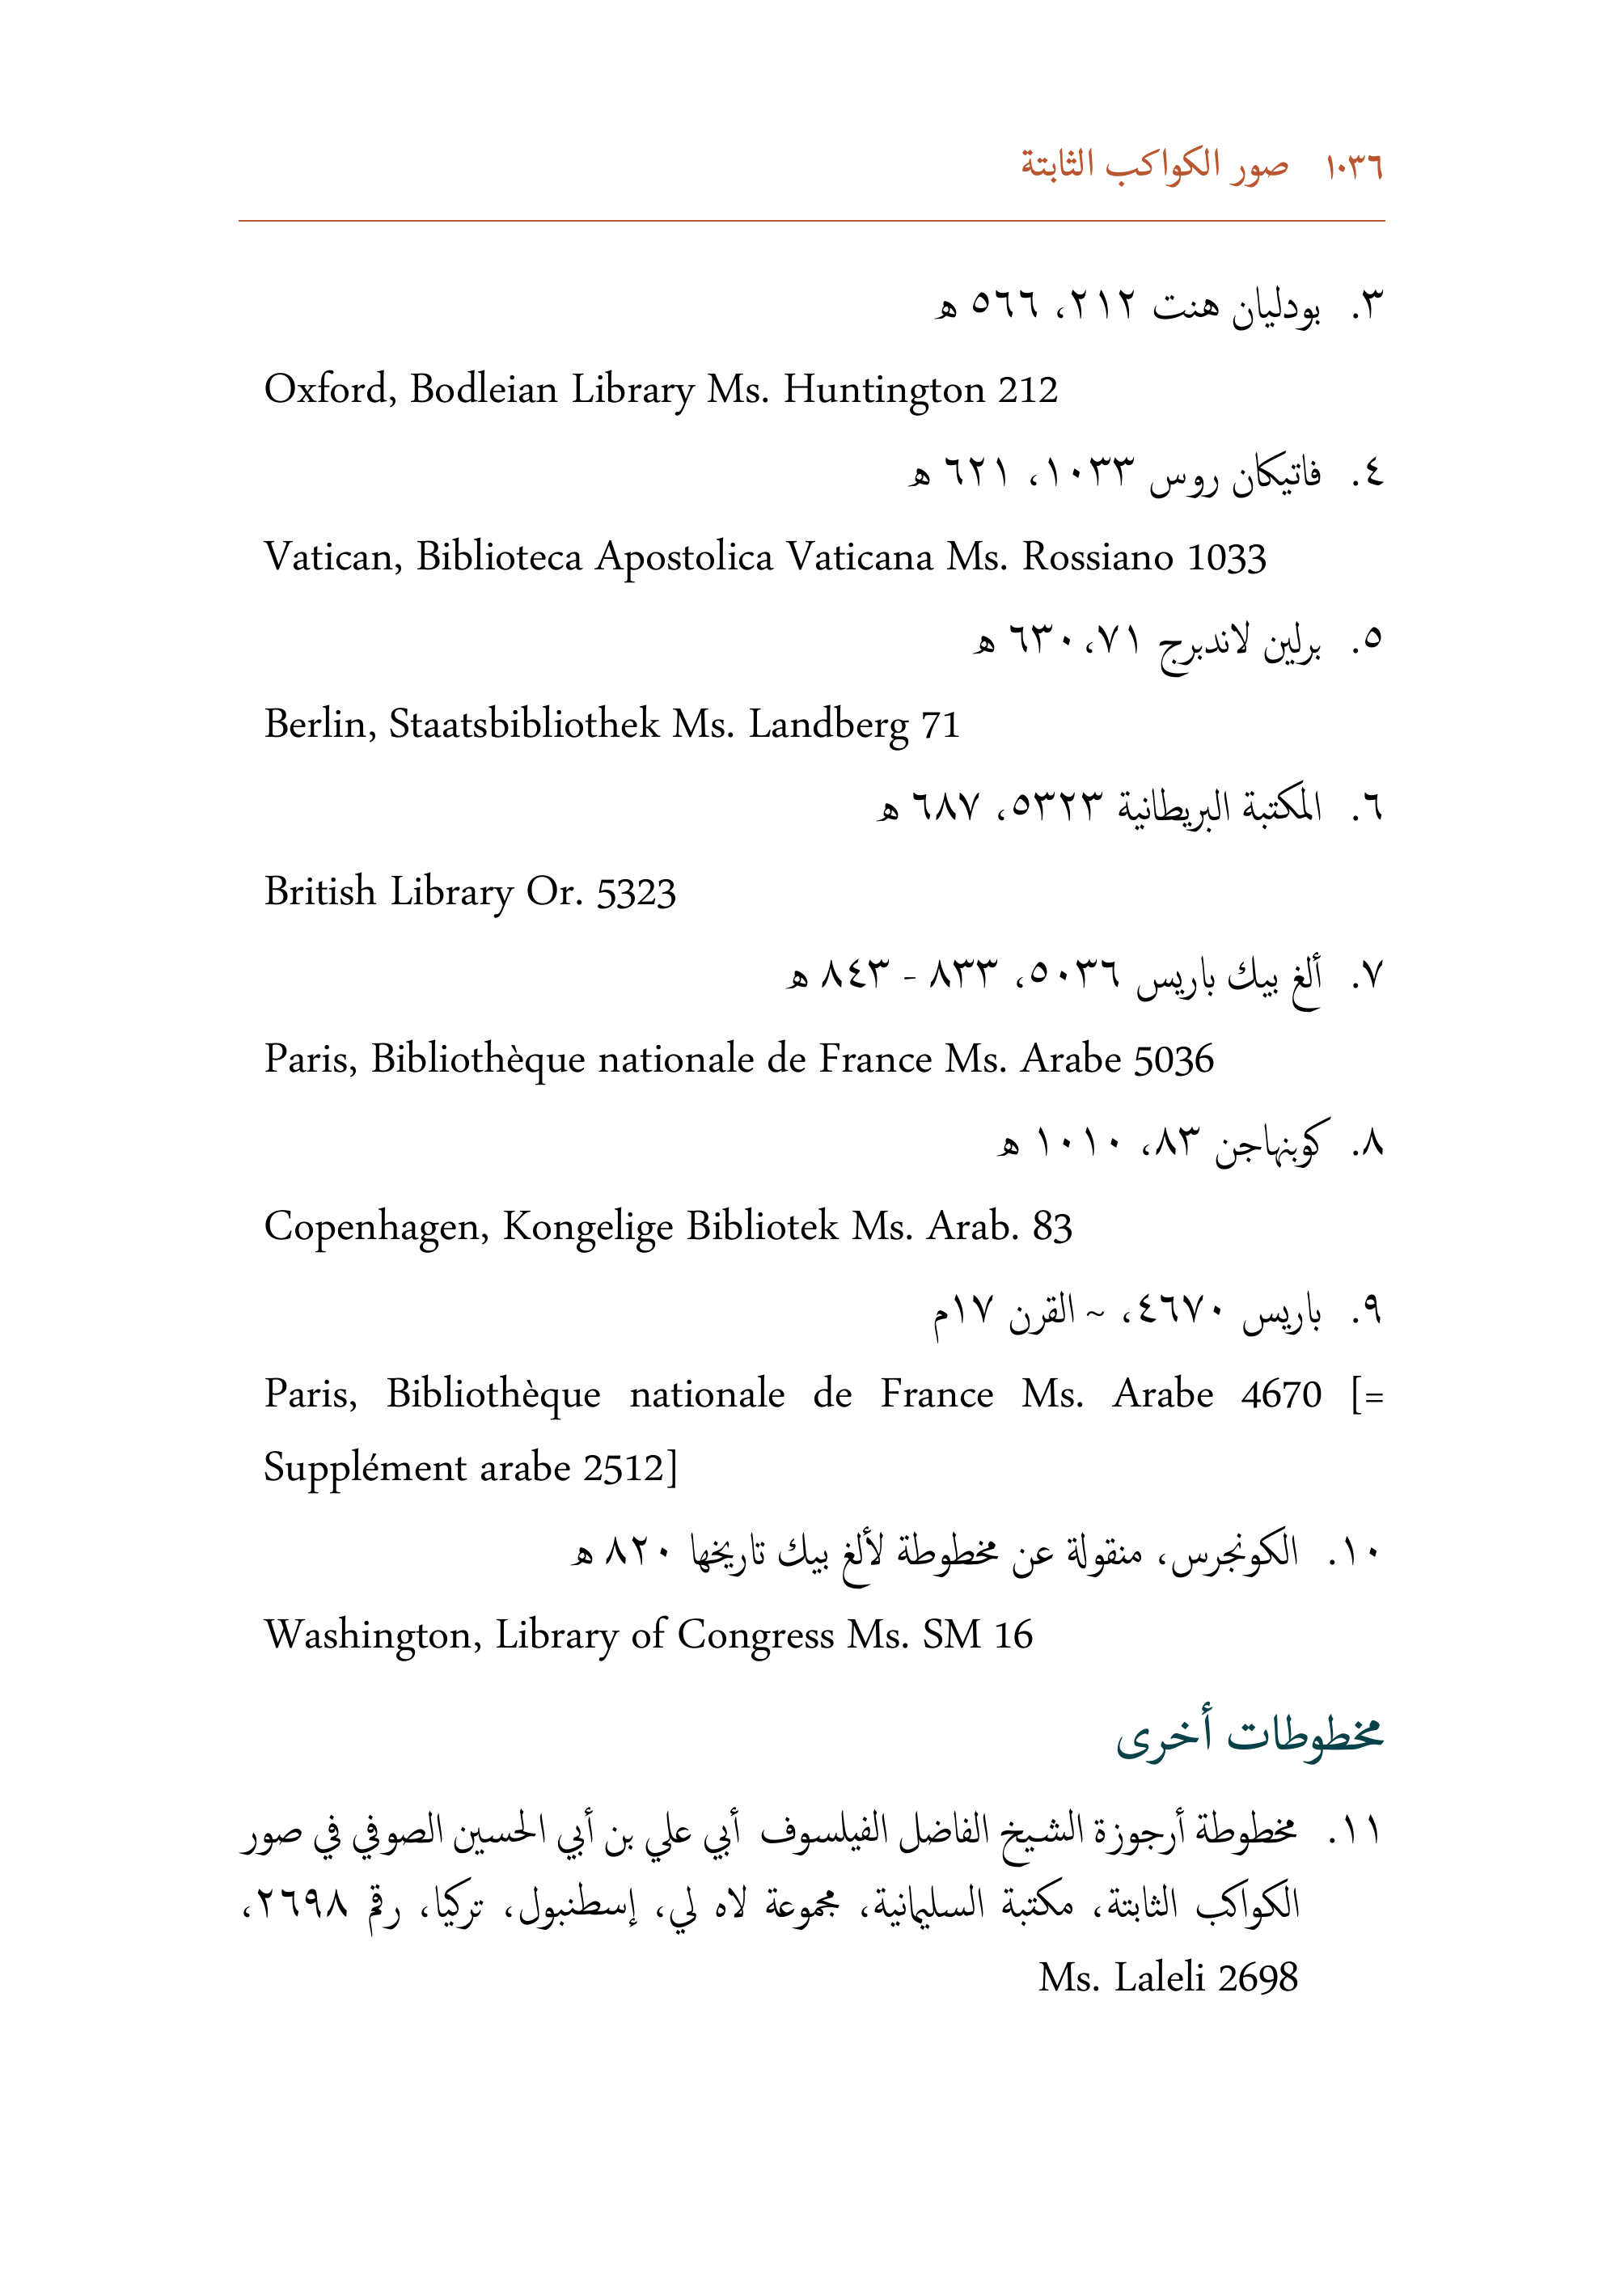 ١٠٣٦ صور الكواكب الثابتة
٣. بودليان هنت ٢١٢، ٥٦٦ ه
Oxford, Bodleian Library Ms. Huntington 212
٤. فاتيكان روس ١٠٣٣، ٦٢١ ه
Vatican, Biblioteca Apostolica Vaticana Ms. Rossiano 1033
٥. برلين لاندبرج ٧١، ٦٣٠ ه
Berlin, Staatsbibliothek Ms. Landberg 71
٦. المكتبة البريطانية ٥٣٢٣، ٦٨٧ ه
British Library Or. 5323
٧. ألغ بيك باريس ٥٠٣٦، ٨٣٣ - ٨٤٣ ه
Paris, Bibliothèque nationale de France Ms. Arabe 5036
٨. كوبنهاجن ٨٣، ١٠١٠ ه
Copenhagen, Kongelige Bibliotek Ms. Arab. 83
٩. باريس ٤٦٧٠، ~ القرن ١٧م
Paris, Bibliothèque nationale de France Ms. Arabe 4670 [=
Supplément arabe 2512]
١٠. الكونجرس، منقولة عن مخطوطة لألغ بيك تاريخها ٨٢٠ ه
Washington, Library of Congress Ms. SM 16
مخطوطات أخرى
١١. مخطوطة أرجوزة الشيخ الفاضل الفيلسوف أبي علي بن أبي الحسين الصوفي في صور
الكواكب الثابتة، مكتبة السليمانية، مجموعة لاه لي، إسطنبول، تركيا، رقم ٢٦٩٨،
Ms. Laleli 2698